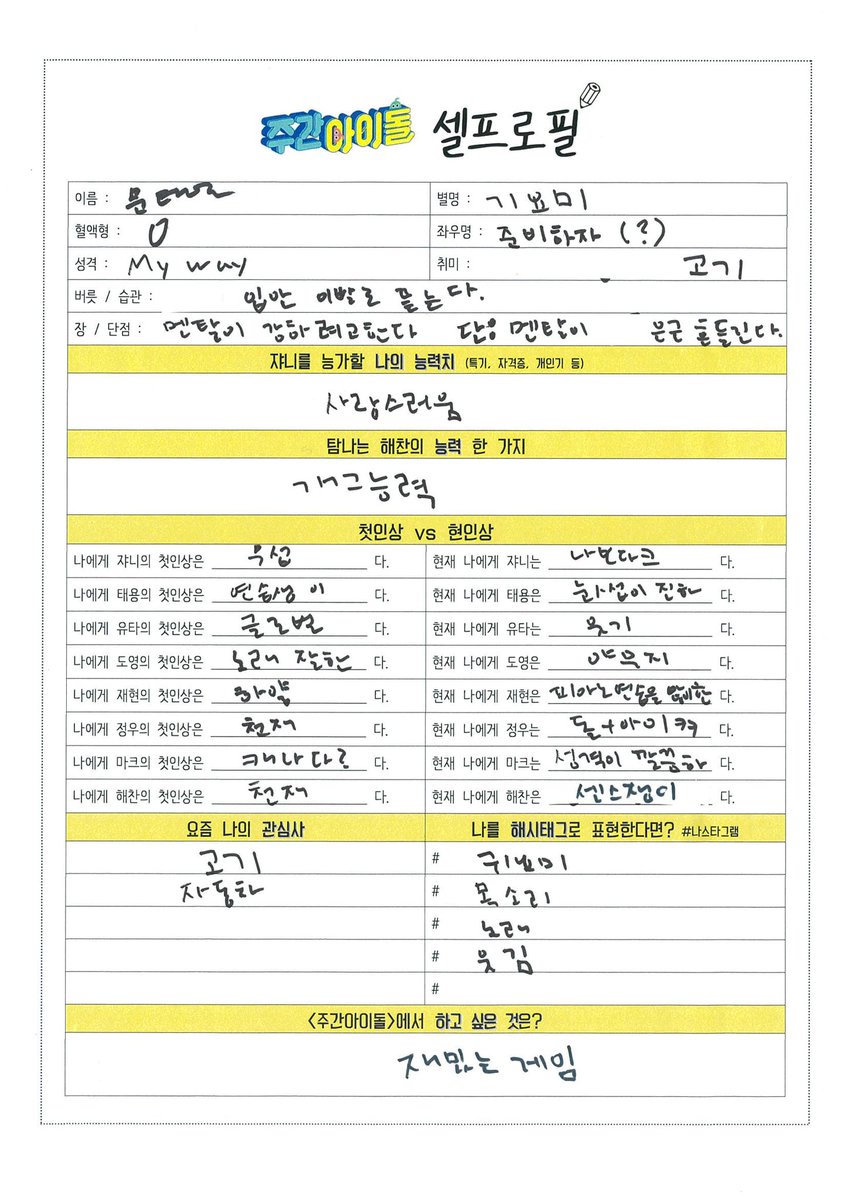 주간아이돌 셀프로필
이름 : 문태일 별명 : 기요미
혈액형 : O 좌우명 : 준비하자 (?)
성격 : My way 취미 : 고기
버릇 / 습관 : 입안 이빨로 뜯는다.
장 / 단점 : 멘탈이 강하려고한다 단응 멘탈이 은근 흔들린다.
쟈니를 능가할 나의 능력치 (특기, 자격증, 개인기 등)
사랑스러움
탐나는 해찬의 능력 한 가지
개그능력
첫인상 vs 현인상
나에게 쟈니의 첫인상은 무섭 다. 현재 나에게 쟈니는 나보다크 다.
나에게 태용의 첫인상은 연습생 이 다. 현재 나에게 태용은 눈썹이 진하 다.
나에게 유타의 첫인상은 글로벌 다. 현재 나에게 유타는 웃기 다.
나에게 도영의 첫인상은 노래 잘한 다. 현재 나에게 도영은 야무지 다.
나에게 재현의 첫인상은 하얗 다. 현재 나에게 재현은 피아노연습을 많이한 다.
나에게 정우의 첫인상은 천재 다. 현재 나에게 정우는 돌+아이ㅋㅋ 다.
나에게 마크의 첫인상은 캐나다! 다. 현재 나에게 마크는 성격이 깔끔하 다.
나에게 해찬의 첫인상은 천재 다. 현재 나에게 해찬은 센스쟁이 다.
요즘 나의 관심사 나를 해시태그로 표현한다면? #나스타그램
고기 # 귀요미
자동차 # 목소리
# 노래
# 웃김
#
<주간아이돌>에서 하고 싶은 것은?
재밌는 게임